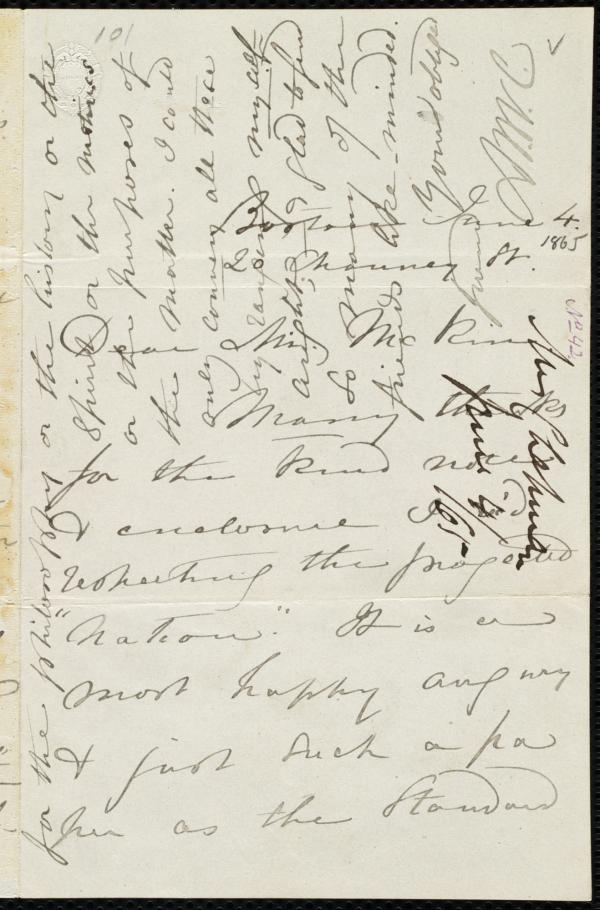 101
Boston June 4.
1865
25 Chauncy St.
Dear Miss McKim
Many thanks
for the kind note
& enclosure I
respecting the projected
"Nation." It is a
most happy augury
& just such a pa
per as the Standard
for the philosophy or the history or the
spirit or the motives
or the purposes of
the matter. I could
only convey all these
by ranging myself
aright, and glad to find
so many of the
friends like-minded.
Yours obliged
No 42
Mrs Chapman
June 4/65